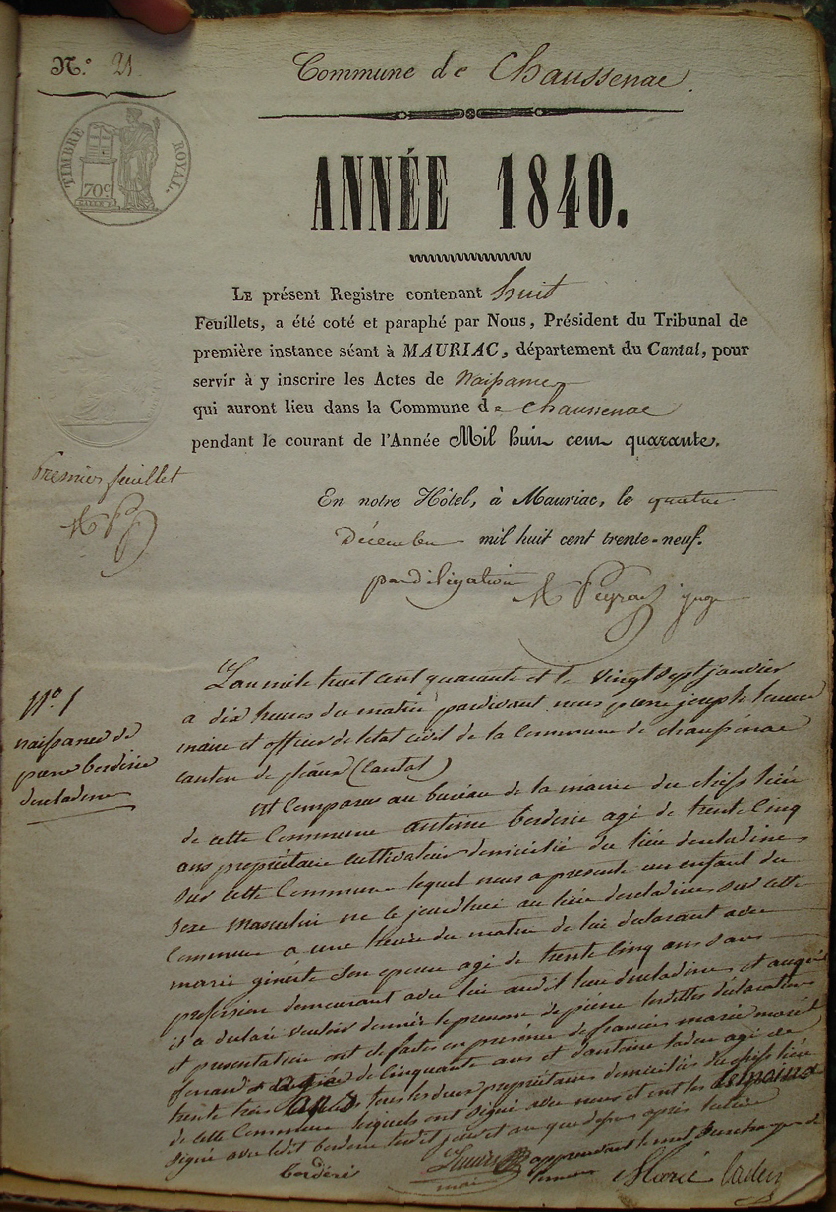 N.º 21.
Commune de Chaussenac.
TIMBRE ROYAL
70c
ANNÉE 1840.
LE présent Registre contenant huit
Feuillets, a été coté et paraphé par Nous, Président du Tribunal de
première instance séant à MAURIAC, département du Cantal, pour
servir à y inscrire les Actes de Naissance
qui auront lieu dans la Commune de Chaussenac
pendant le courant de l'Année Mil huit cent quarante.
Premier feuillet
En notre Hôtel, à Mauriac, le quatre
Décembre mil huit cent trente-neuf.
par délégation juge
Nº 1
naissance de
pierre borderie
L'an mile huit cent quarante et le vingt sept janvier
a dix heures du matin pardevant nous pierre joseph
maire et officier de letat civil de la Commune de chaussenac
canton de pléaux (Cantal)
est Comparu au bureau de la mairie du chefs lieu
de cette Commune antoine borderie agé de trente Cinq
ans propriétaire cultivateur domicilié du lieu
sur cette Commune lequel nous a présenté un enfant du
sexe masculin né ce jourdhui au lieu sur cette
Commune a une heure du matin de lui déclarant avec
marie son epouse agé de trente Cinq ans sans
profession demeurant avec lui audit lieu et auquel
il a déclaré vouloir donner le prenom de pierre lesdittes déclaration
et presentation ont été faites en présence de francois marie
de Cinquante ans et dantoine agé de
trente trois ans tous les deux propriétaires domiciliés du chefs lieu
de cette Commune lesquels ont signé avec nous
signé avec ledit borderie lesdit jour et an que dessus après lecture
borderie
maire
Marié